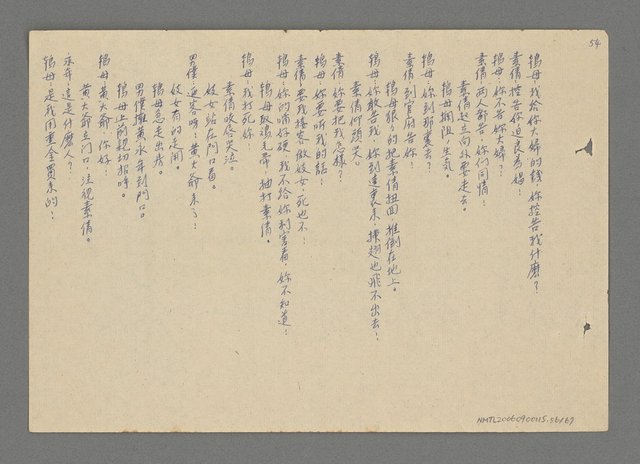 54
鴇母:我給你大婦的錢,妳控告我什麼?
素倩:控告你迫良為娼!
鴇母:妳不告妳大婦?
素倩:兩人都告,妳們同情!
素倩起立向外要走去。
鴇母攔阻,生氣。
鴇母:妳到那裏去?
素倩:到官府告妳!
鴇母狠狠的把素倩扭回,推倒在地上。
鴇母:妳敢告我,妳到這裏來,揷翅也飛不出去!
素倩仰頭哭。
素倩:妳要把我怎樣?
鴇母:妳要听我的話!
素倩:要我接客做妓女,死也不!
鴇母:妳的嘴你硬,我不給妳利害看,妳不知道!
鴇母取鷄毛帚,抽打素倩。
鴇母:我打死妳!
素倩哎疼哭泣。
妓女站在門口看。
男僕:迎客呀!黃大爺來了!
妓女有的走開。
鴇母急走出房。
男僕擁黃永年到門口。
鴇母上前親切招呼。
鴇母:黃大爺,你好!
黃大爺立門口,注視素倩。
永年:這是什麼人?
鴇母:是我用重金買來的!
NMTL20060900115.56/67